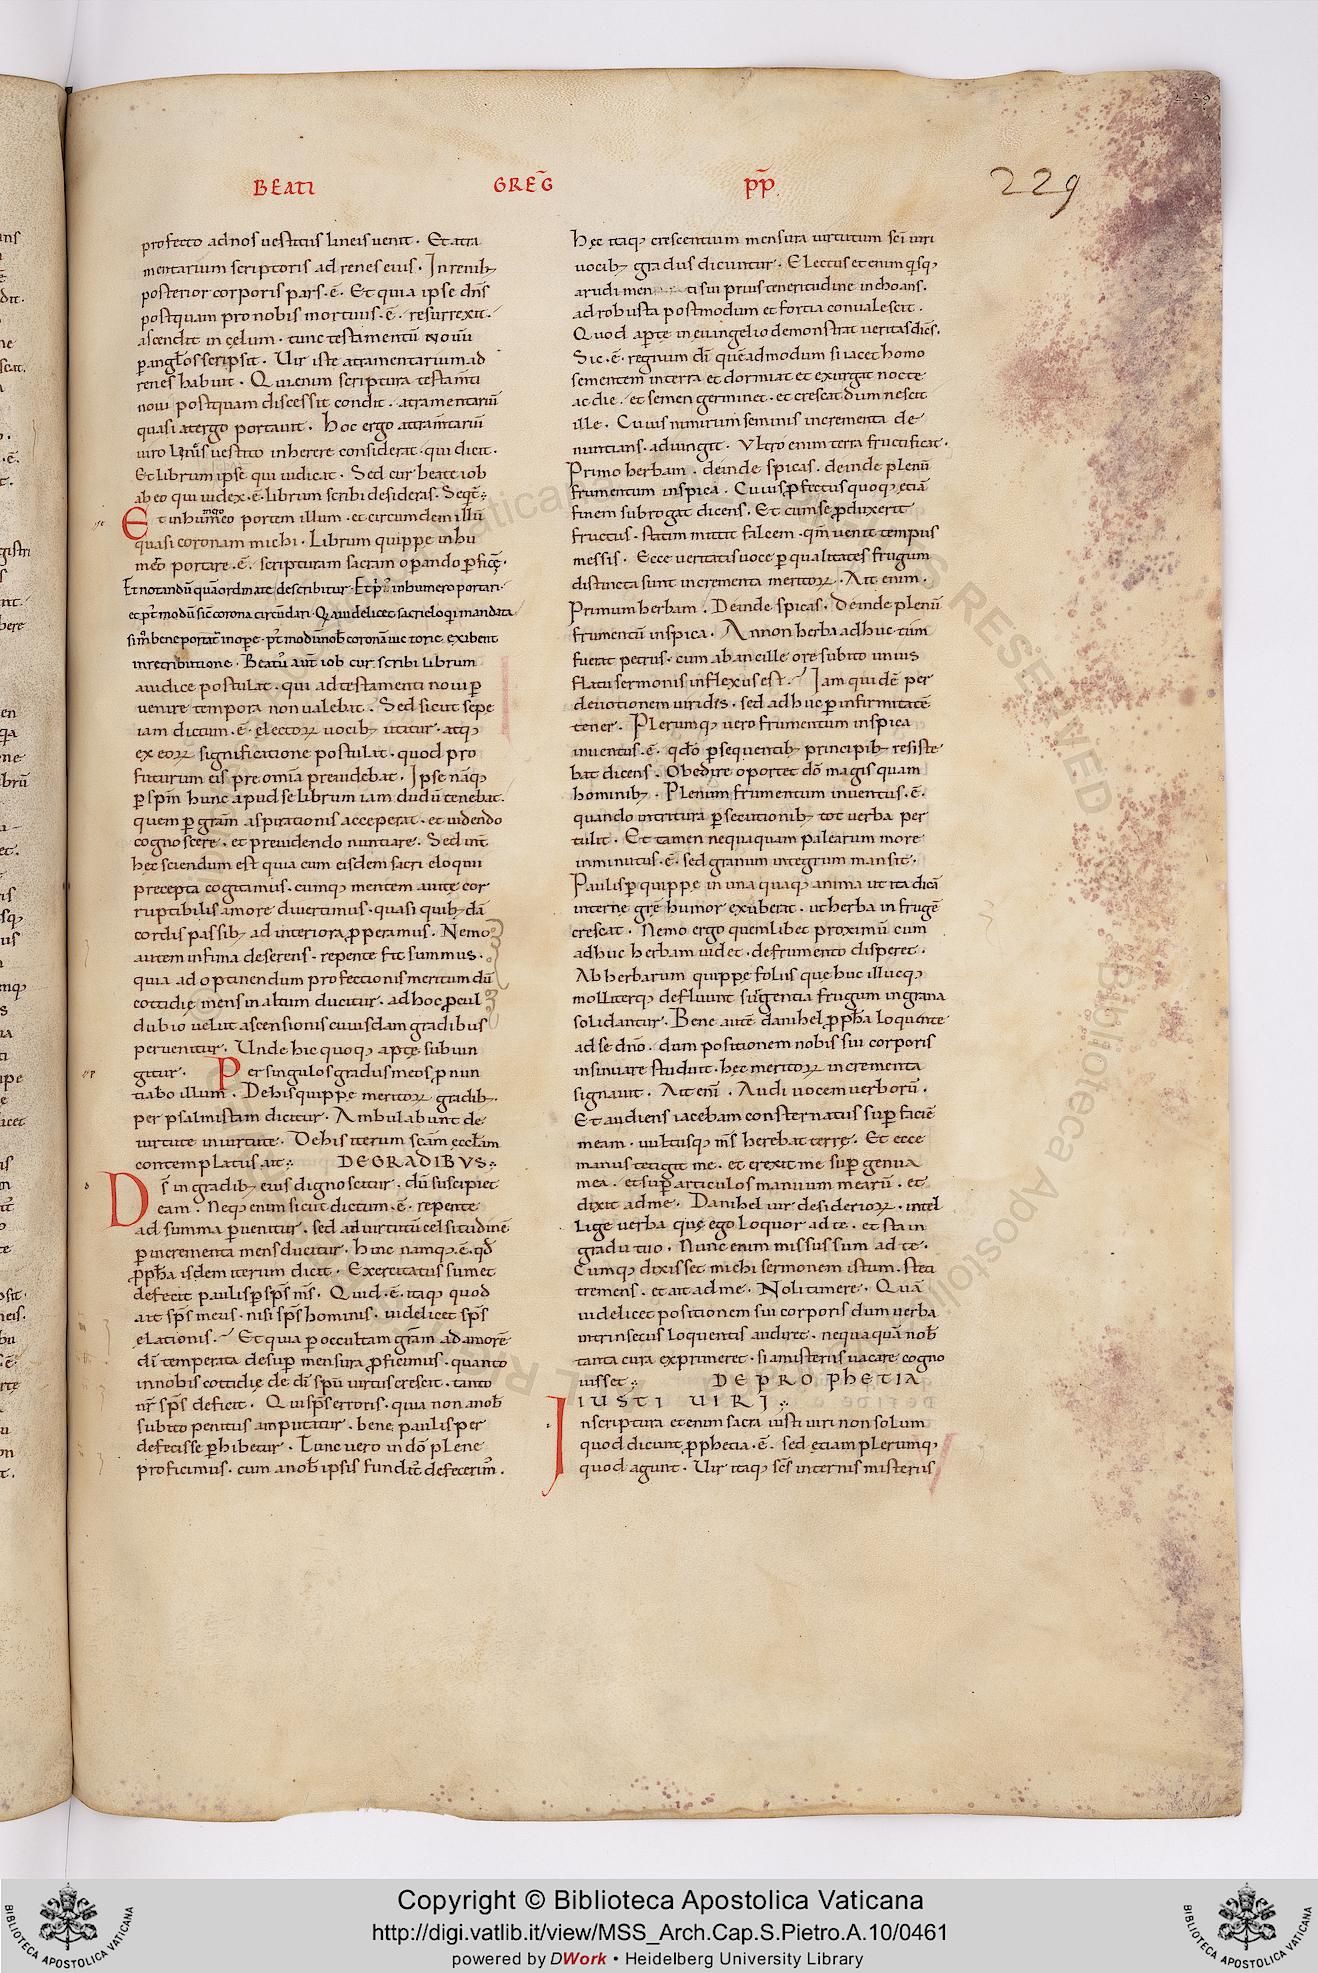 BEATI GREG̅ PP̅
229
profecto ad nos uestitus lineis uenit . Et atra
mentarium scriptoris ad renes eius . In renibꝫ
posterior corporis pars . ē . Et quia ipse dn̅s
postquam pro nobis mortuus . ē . resurrexit .
ascendit in cęlum . tunc testamentū nouū
ꝑ angl̅os scripsit . Uir iste atramentarium ad
renes habuit . Qui enim scriptura testam̅ti
noui postquam discessit condit . atramentariū
quasi atergo portauit . Hoc ergo atram̅tariū
uiro lineis uestito inherere considerat . qui dicit .
Et librum ipse qui iudicat . Sed cur beate iob
ab eo qui iudex . ē . librum scribi desideras . Seqt̅ ;
Et in humero meo portem illum . et circumdem illū
quasi coronam michi . Librum quippe in hu
mēo portare . ē . scripturam sacram oꝑando ꝑficę .
Et notandū quā ordinate describitur . Et pri̅ in humero portari .
et pt̅ modū sic̅ corona circūdari . Q̅a uidelicet sacri eloq̅i mandata
si m̅ bene portat̅ in oꝑe . pt̅ modū nob̅ coronā uictorię exibent
in retributione . Beatū aut̅ iob cur scribi librum
a iudice postulat . qui ad testamenti noui ꝑ
uenire tempora non ualebat . Sed sicut sepe
iam dictum . ē . electoꝝ uocibꝫ utitur . atqꝫ
ex eoꝝ significatione postulat . quod pro
futurum eis pre omnia preuidebat . Ipse nāqꝫ
ꝑ spm̅ hunc apud se librum iam dudū tenebat .
quem ꝑ gram̅ aspirationis acceperat . et uidendo
cognoscere . et preuidendo nuntiare . Sed int̅
hec sciendum est quia cum eisdem sacri eloquii
precepta cogitamus . cumqꝫ mentem a uite cor
ruptibilis amore diuertimus . quasi quibꝫdā
cordis passibꝫ ad interiora ꝓperamus . Nemo
autem infima deserens . repente fit summus .
quia ad optinendum profectionis meritum dū
cottidię mens in altum ducitur . ad hoc ꝓcul
dubio uelut ascensionis cuiusdam gradibus
peruenitur . Unde hic quoqꝫ aptę subiun
gitur . Per singulos gradus meos ꝓnun
tiabo illum . De his quippe meritoꝝ gradibꝫ
per psalmistam dicitur . Ambulabunt de
uirtute in uirtute . De his iterum scam̅ eccl̅am
contemplatus ait ; DE GRADIBVS ;
Ds̅ in gradibꝫ eius dignoscitur . dū suscipiet
eam . Neqꝫ enim sicut dictum . ē . repente
ad summa ꝑuenitur . sed ad uirtutū celsitudinē
ꝑ incrementa mens ducitur . Hinc namqꝫ . ē . qd̅
ꝓph̅a isdem iterum dicit . Exercitatus sum et
defecit paulisꝑ sps̅ ms̅ . Quid . ē . itaqꝫ quod
ait sps̅ meus . nisi sps̅ hominis . uidelicet sps̅
elationis . Et quia ꝑ occultam gram̅ ad amorē
di̅ temperata desuꝑ mensura ꝓficimus . quanto
in nobis cottidię de di̅ spū uirtus crescit . tanto
nr̅ sps̅ deficit . Qui sps̅ erroris . quia non a nob̅
subito penitus amputatur . bene paulisper
defecisse ꝑhibetur . Tunc uero in dō plene
proficimus . cum a nob̅ ipsis fundit̅ defecerim̅ .
Hęc itaqꝫ crescentium mensura uirtutum sc̅i uiri
uocibꝫ gradus dicuntur . Electus et enim qisqꝫ
a rudi men ti sui prius teneritudine inchoans .
ad robusta postmodum et fortia conualescit .
Quod aꝑte in euangelio demonstrat ueritas dices̅ .
Sic . ē . regnum di̅ quēadmodum si iacet homo
sementem in terra et dormiat et exurgat nocte
ac die . et semen germinet . et crescat dum nescit
ille . Cuius nimirum seminis incrementa de
nuntians . adiungit . Vltro enim terra fructificat .
Primo herbam . deinde spicas . deinde plenū
frumentum in spica . Cuius ꝓfectus quoqꝫ etiā
finem subrogat dicens . Et cum se ꝓduxerit
fructus . statim mittit falcem . qm̅ uenit tempus
messis . Ecce ueritatis uoce ꝑ qualitates frugum
distincta sunt incrementa meritoꝝ . Ait enim .
Primum herbam . Deinde spicas . Deinde plenū
frumentū in spica . An non herba adhuc tūm
fuerat petrus . cum ab ancille ore subito unius
flatu sermonis inflexus est . Iam quidē per
deuotionem uiridis . sed adhuc ꝑ infirmitatē
tener . Plerumqꝫ uero frumentum in spica
inuentus . ē . qdo̅ ꝑsequentibꝫ principibꝫ resiste
bat dicens . Obedire oportet dō magis quam
hominibꝫ . Plenum frumentum inuentus . ē .
quando in tritura ꝑsecutionibꝫ tot uerba per
tulit . Et tamen nequaquam palearum more
inminutus . ē . sed granum integrum mansit .
Paulisꝑ quippe in una quaqꝫ anima ut ita dicā
interne gre̅ humor exuberat . ut herba in frugē
crescat . Nemo ergo quemlibet proximū cum
adhuc herbam uidet . de frumento disperet .
Ab herbarum quippe foliis que huc illucqꝫ
molliterqꝫ defluunt surgentia frugum in grana
solidantur . Bene autē danihel ꝓph̅a loquente
ad se dn̅o . dum positionem nobis sui corporis
insinuare studuit . hęc meritoꝝ incrementa
signauit . Ait eni̅ . Audi uocem uerborū .
Et audiens iacebam consternatus suꝑ faciē
meam . uultusqꝫ ms̅ herebat terrę . Et ecce
manus tetigit me . et erexit me suꝑ genua
mea . et suꝑ articulos manuum mearū . et
dixit ad me . Danihel uir desiderioꝝ . intel
lige uerba quę ego loquor ad te . et sta in
gradu tuo . Nunc enim missus sum ad te .
Cumqꝫ dixisset michi sermonem istum . steti
tremens . et ait ad me . Noli timere . Quā
uidelicet positionem sui corporis dum uerba
intrinsecus loquentis audiret . nequaquā nob̅
tanta cura exprimeret . si a misteriis uacare cogno
uisset ; DE PROPHETIA
IUSTI UIRI ;
In scriptura etenim sacra iusti uiri non solum
quod dicunt ꝓphetia . ē . sed etiam plerumqꝫ
quod agunt . Uir itaqꝫ scs̅ internis misteriis
Copyright © Biblioteca Apostolica Vaticana
http://digi.vatlib.it/view/MSS_Arch.Cap.S.Pietro.A.10/0461
powered by DWork • Heidelberg University Library
BIBLIOTECA APOSTOLICA VATICANA
BIBLIOTECA APOSTOLICA VATICANA